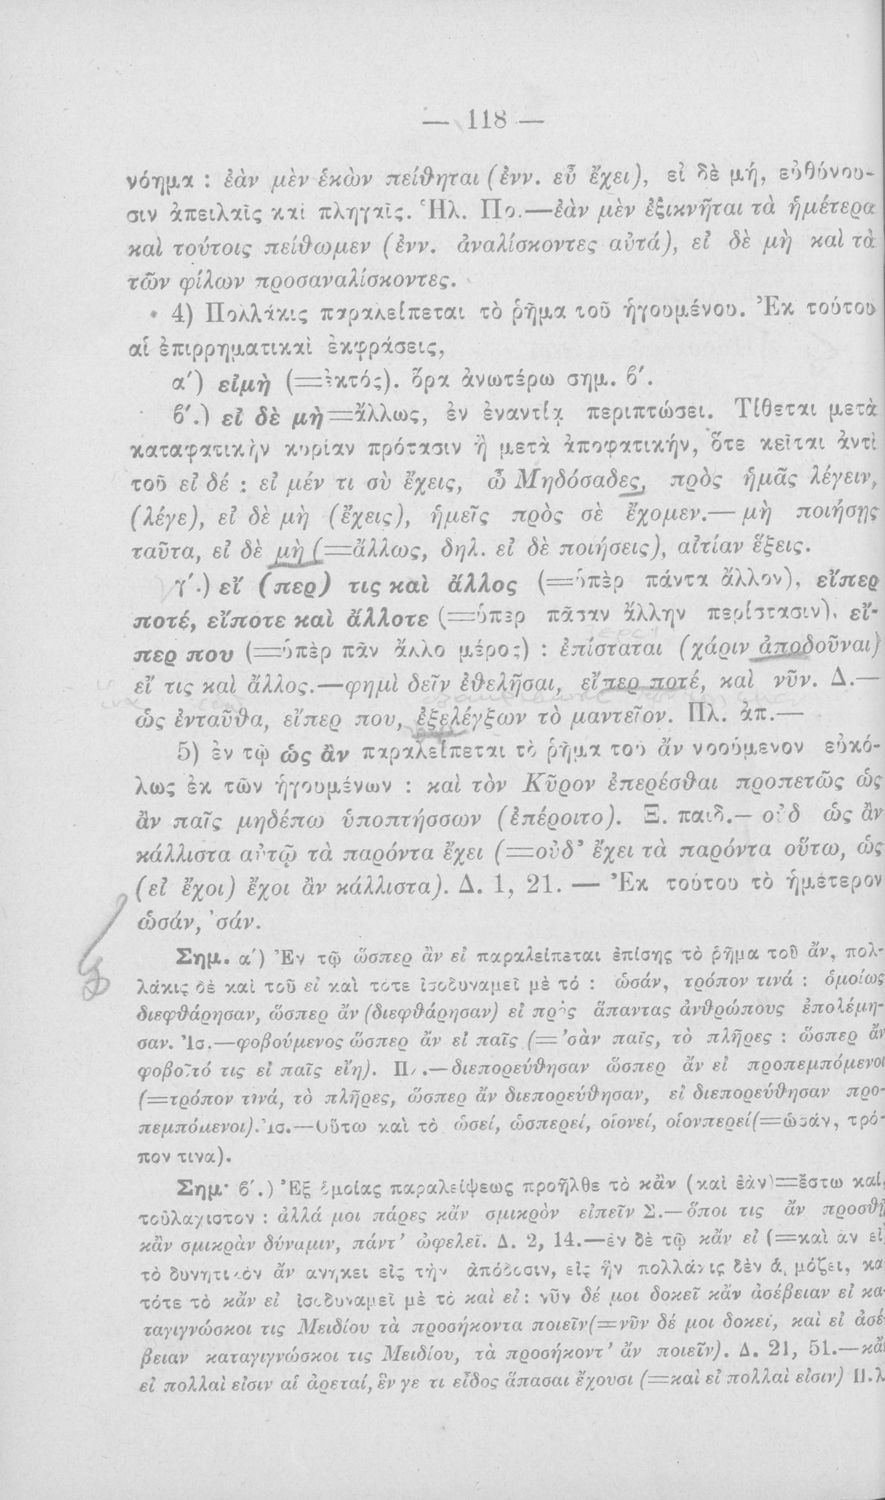 — 118 —
νόημα : ἐὰν μὲν ἑκὼν πείθηται (ἐνν. εὖ ἔχει), εἰ δὲ μή, εὐθύνου-
σιν ἀπειλαῖς καὶ πληγαῖς. Ἡλ. Πο.—ἐὰν μὲν ἐξικνῆται τὰ ἡμέτερα
καὶ τούτοις πείθωμεν (ἐνν. ἀναλίσκοντες αὐτά), εἰ δὲ μὴ καὶ τὰ
τῶν φίλων προσαναλίσκοντες.
4) Πολλάκις παραλείπεται τὸ ῥῆμα τοῦ ἡγουμένου. Ἐκ τούτου
αἱ ἐπιρρηματικαὶ ἐκφράσεις,
α΄) εἰμὴ (=ἐκτός). ὅρα ἀνωτέρω σημ. β΄.
β΄.) εἰ δὲ μὴ=ἄλλως, ἐν ἐναντίᾳ περιπτώσει. Τίθεται μετὰ
καταφατικὴν κυρίαν πρότασιν ἢ μετὰ ἀποφατικήν, ὅτε κεῖται ἀντὶ
τοῦ εἰ δέ : εἰ μέν τι σὺ ἔχεις, ὦ Μηδόσαδες, πρὸς ἡμᾶς λέγειν,
(λέγε), εἰ δὲ μὴ (ἔχεις), ἡμεῖς πρὸς σὲ ἔχομεν.— μὴ ποιήσῃς
ταῦτα, εἰ δὲ μὴ (=ἄλλως, δηλ. εἰ δὲ ποιήσεις), αἰτίαν ἕξεις.
γ΄.) εἴ (περ) τις καὶ ἄλλος (=ὑπὲρ πάντα ἄλλον), εἴπερ
ποτέ, εἴποτε καὶ ἄλλοτε (=ὑπὲρ πᾶσαν ἄλλην περίστασιν), εἴ-
περ που (=ὑπὲρ πᾶν ἄλλο μέρος) : ἐπίσταται (χάριν ἀποδοῦναι)
εἴ τις καὶ ἄλλος.—φημὶ δεῖν ἐθελῆσαι, εἴπερ ποτέ, καὶ νῦν. Δ.—
ὡς ἐνταῦθα, εἴπερ που, ἐξελέγξων τὸ μαντεῖον. Πλ. ἀπ.—
5) ἐν τῷ ὡς ἂν παραλείπεται τὸ ῥῆμα τοῦ ἄν νοούμενον εὐκό-
λως ἐκ τῶν ἡγουμένων : καὶ τὸν Κῦρον ἐπερέσθαι προπετῶς ὡς
ἂν παῖς μηδέπω ὑποπτήσσων (ἐπέροιτο). Ξ. παιδ.— οὐδ ὡς ἂν
κάλλιστα αὐτῷ τὰ παρόντα ἔχει (=οὐδ' ἔχει τὰ παρόντα οὕτω, ὡς
(εἰ ἔχοι) ἔχοι ἂν κάλλιστα). Δ. 1, 21. — Ἐκ τούτου τὸ ἡμέτερον
ὡσάν, 'σάν.
Σημ. α΄) Ἐν τῷ ὥσπερ ἂν εἰ παραλείπεται ἐπίσης τὸ ῥῆμα τοῦ ἄν, πολ-
λάκις δὲ καὶ τοῦ εἰ καὶ τότε ἰσοδυναμεῖ μὲ τό : ὡσάν, τρόπον τινά : ὁμοίως
διεφθάρησαν, ὥσπερ ἄν (διεφθάρησαν) εἰ πρὸς ἅπαντας ἀνθρώπους ἐπολέμη-
σαν. Ἰσ.—φοβούμενος ὥσπερ ἄν εἰ παῖς (='σὰν παῖς, τὸ πλῆρες : ὥσπερ ἄν
φοβοῖτό τις εἰ παῖς εἴη). Πλ.—διεπορεύθησαν ὥσπερ ἄν εἰ προπεμπόμενοι
(=τρόπον τινά, τὸ πλῆρες, ὥσπερ ἄν διεπορεύθησαν, εἰ διεπορεύθησαν προ-
πεμπόμενοι). Ἰσ.—Οὕτω καὶ τὸ ὡσεί, ὡσπερεί, οἱονεί, οἱονπερεί(=ὡσάν, τρό-
πον τινα).
Σημ· β΄.) Ἐξ ὁμοίας παραλείψεως προῆλθε τὸ κἂν (καὶ ἐὰν)=ἔστω καί,
τοὐλαχιστον : ἀλλά μοι πάρες κἄν σμικρὸν εἰπεῖν Σ.—ὅποι τις ἄν προσθῇ
κἂν σμικρὰν δύναμιν, πάντ' ὠφελεῖ. Δ. 2, 14.—ἐν δὲ τῷ κἄν εἰ (=καὶ ἂν εἰ
τὸ δυνητικὸν ἄν ανήκει εἰς τὴν ἀπόδοσιν, εἰς ἣν πολλάκις δὲν ἁρμόζει, κα
τότε τὸ κἄν εἰ ἰσοδυναμεῖ μὲ τὸ καὶ εἰ : νῦν δέ μοι δοκεῖ κἄν ἀσέβειαν εἰ κα-
ταγιγνώσκοι τις Μειδίου τὰ προσήκοντα ποιεῖν(=νῦν δέ μοι δοκεί, καὶ εἰ ἀσέ
βειαν καταγιγνώσκοι τις Μειδίου, τὰ προσήκοντ' ἄν ποιεῖν). Δ. 21, 51.—κἄν
εἰ πολλαὶ εἰσιν αἱ ἀρεταί, ἕν γε τι εἶδος ἅπασαι ἔχουσι (=καὶ εἰ πολλαὶ εἰσιν) Πλ